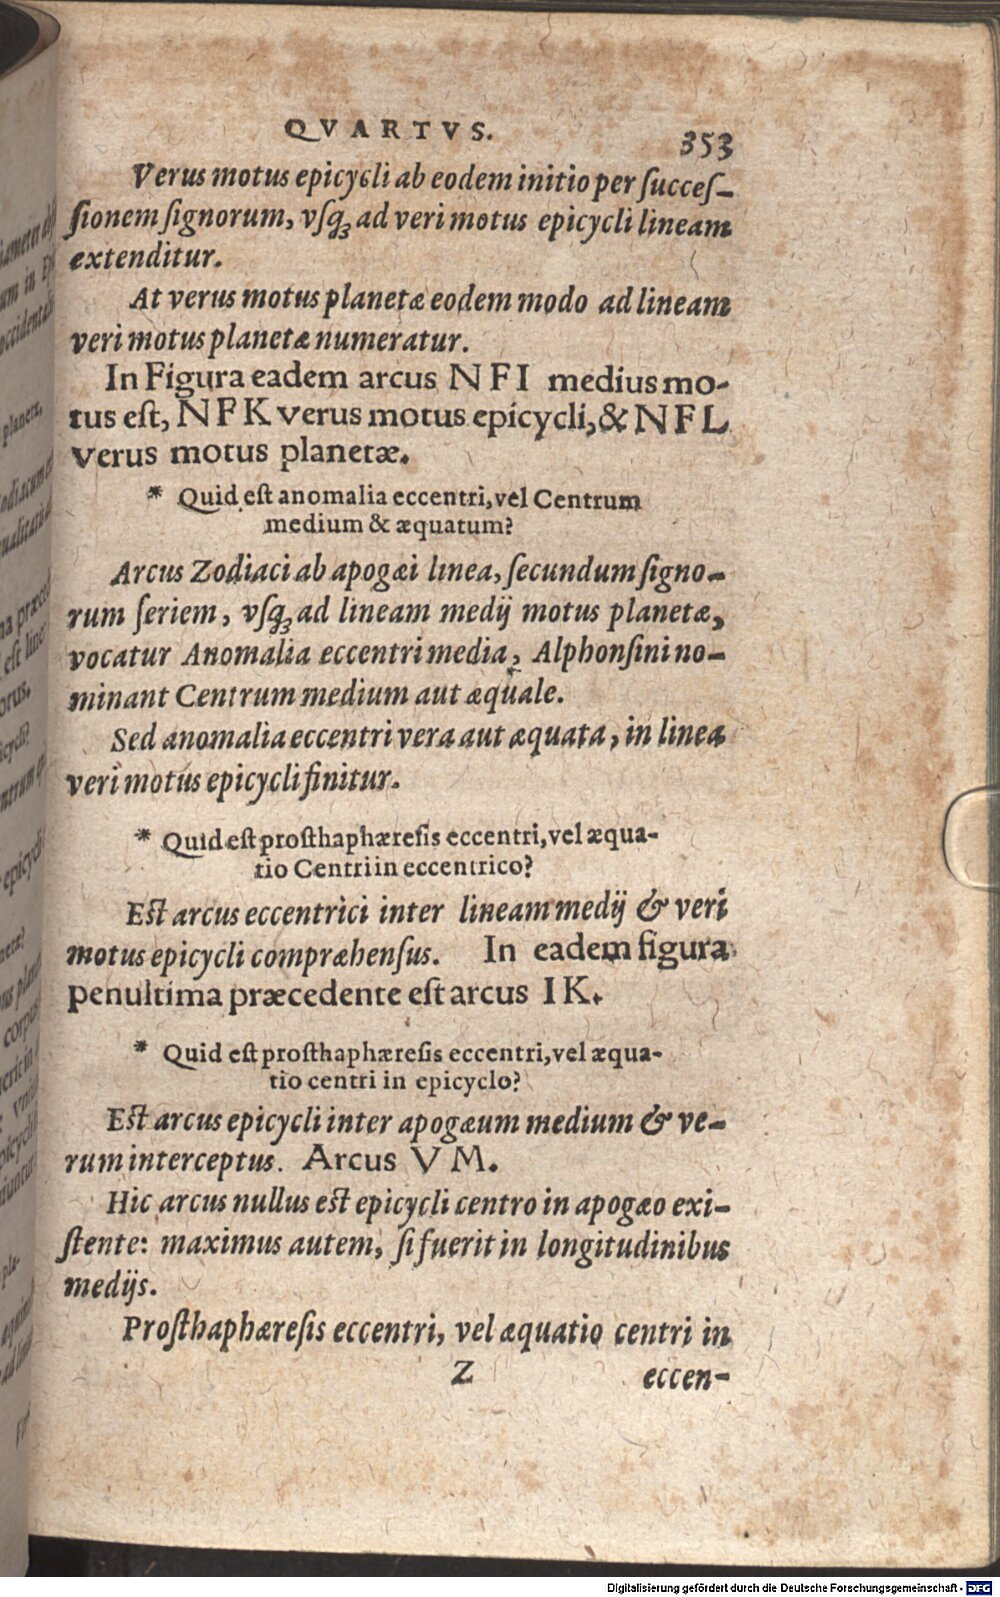 QVARTVS. 353
Verus motus epicycli ab eodem initio per succeſ-
ſionem ſignorum, vſq́ꝫ ad veri motus epicycli lineam
extenditur.
At verus motus planetæ eodem modo ad lineam
veri motus planetæ numeratur.
In Figura eadem arcus NFI medius mo-
tus eſt, NFK verus motus epicycli, & NFL
verus motus planetæ.
* Quid eſt anomalia eccentri, vel Centrum
medium & æquatum?
Arcus Zodiaci ab apogæi linea, ſecundum ſigno-
rum ſeriem, vſq́ꝫ ad lineam medij motus planetæ,
vocatur Anomalia eccentri media, Alphonſini no-
minant Centrum medium aut æquale.
Sed anomalia eccentri vera aut æquata, in linea
veri motus epicycli finitur.
* Quid eſt proſthaphæreſis eccentri, vel æqua-
tio Centri in eccentrico?
Eſt arcus eccentrici inter lineam medij & veri
motus epicycli compræhenſus. In eadem figura
penultima præcedente eſt arcus IK.
* Quid eſt proſthaphæreſis eccentri, vel æqua-
tio centri in epicyclo?
Eſt arcus epicycli inter apogæum medium & ve-
rum interceptus. Arcus VM.
Hic arcus nullus eſt epicycli centro in apogæo exi-
ſtente: maximus autem, ſi fuerit in longitudinibus
medijs.
Proſthaphæreſis eccentri, vel æquatio centri in
Z eccen-
Digitalisierung gefördert durch die Deutsche Forschungsgemeinschaft - DFG